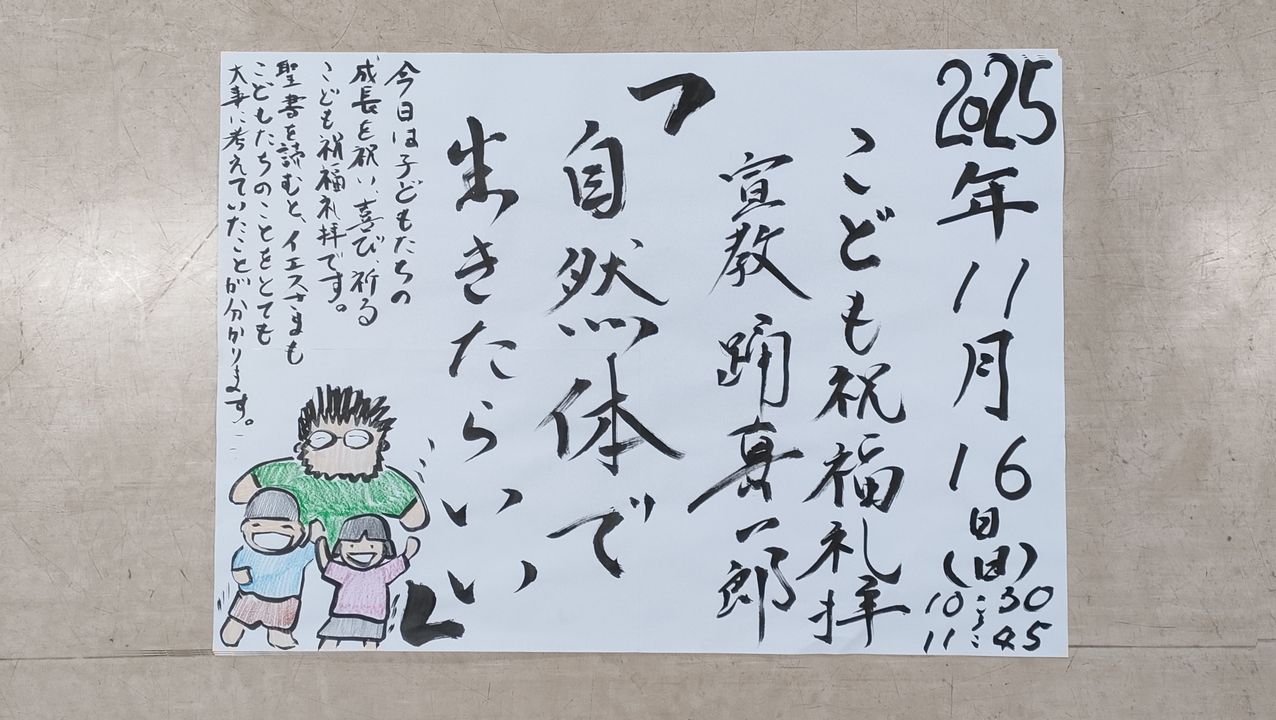 2025年11月16日(日)
10:30
〜
11:45
こども祝福礼拝
宣教 踊真一郎
「自然体で
生きたらいい」
今日は子どもたちの
成長を祝い、喜び、祈る
こども祝福礼拝です。
聖書を読むと、イエスさまも
こどもたちのことをとても
大事に考えていたことが分かります。